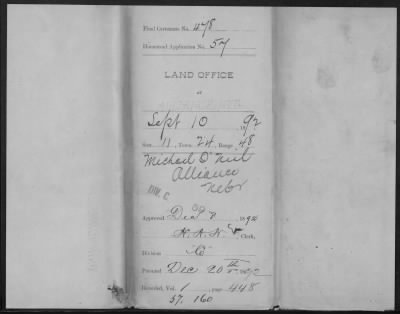 Final Certificate No. 478
Homestead Application No. 57
LAND OFFICE
at
Sept 10 1892
Sec. 11, Town. 24, Range 48
Michael O'Neil
Alliance
Nebr
Approved Dec 8 1892
Clerk,
Division C
Patented Dec 20th 1892
Recorded, Vol. 1, page 448
57. 160